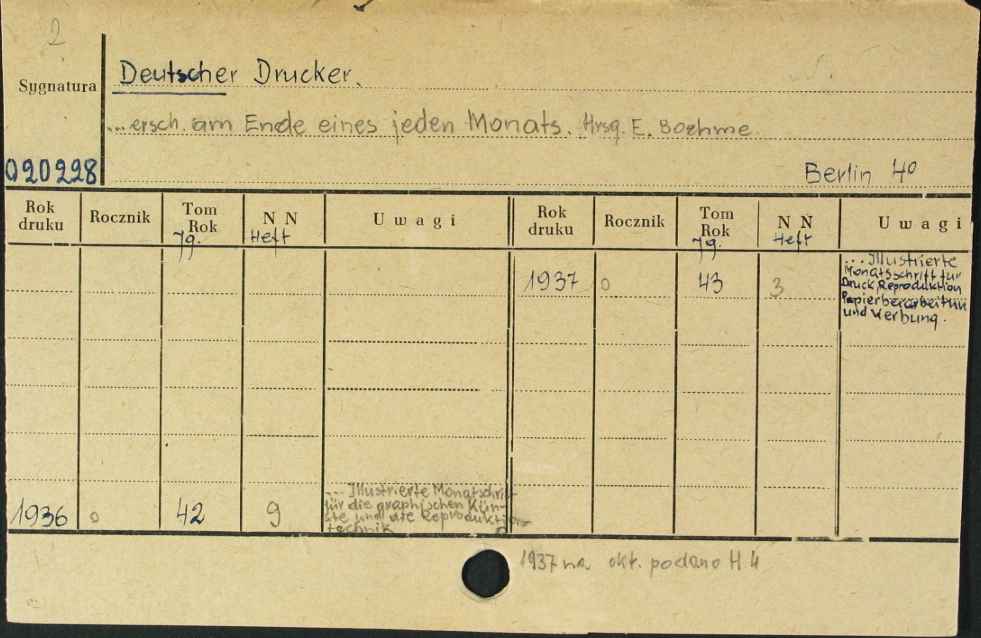 2
Sygnatura
Deutscher Drucker.
...ersch. am Ende eines jeden Monats. Hrsg. E. Boehme
020228
Berlin 40
Rok druku Rocznik Tom Rok Jg. N N Heft Uwagi Rok druku Rocznik Tom Rok Jg. N N Heft Uwagi
1937 0 43 3
... Illustrierte
Monatsschrift für
Druck, Reproduktion
Papierberarbeitun
und Werbung.
1936 0 42 9
... Illustrierte Monatschrift
für die graphischen Kün-
ste und die Reproduktions
technik
1937 na okt. podano H 4